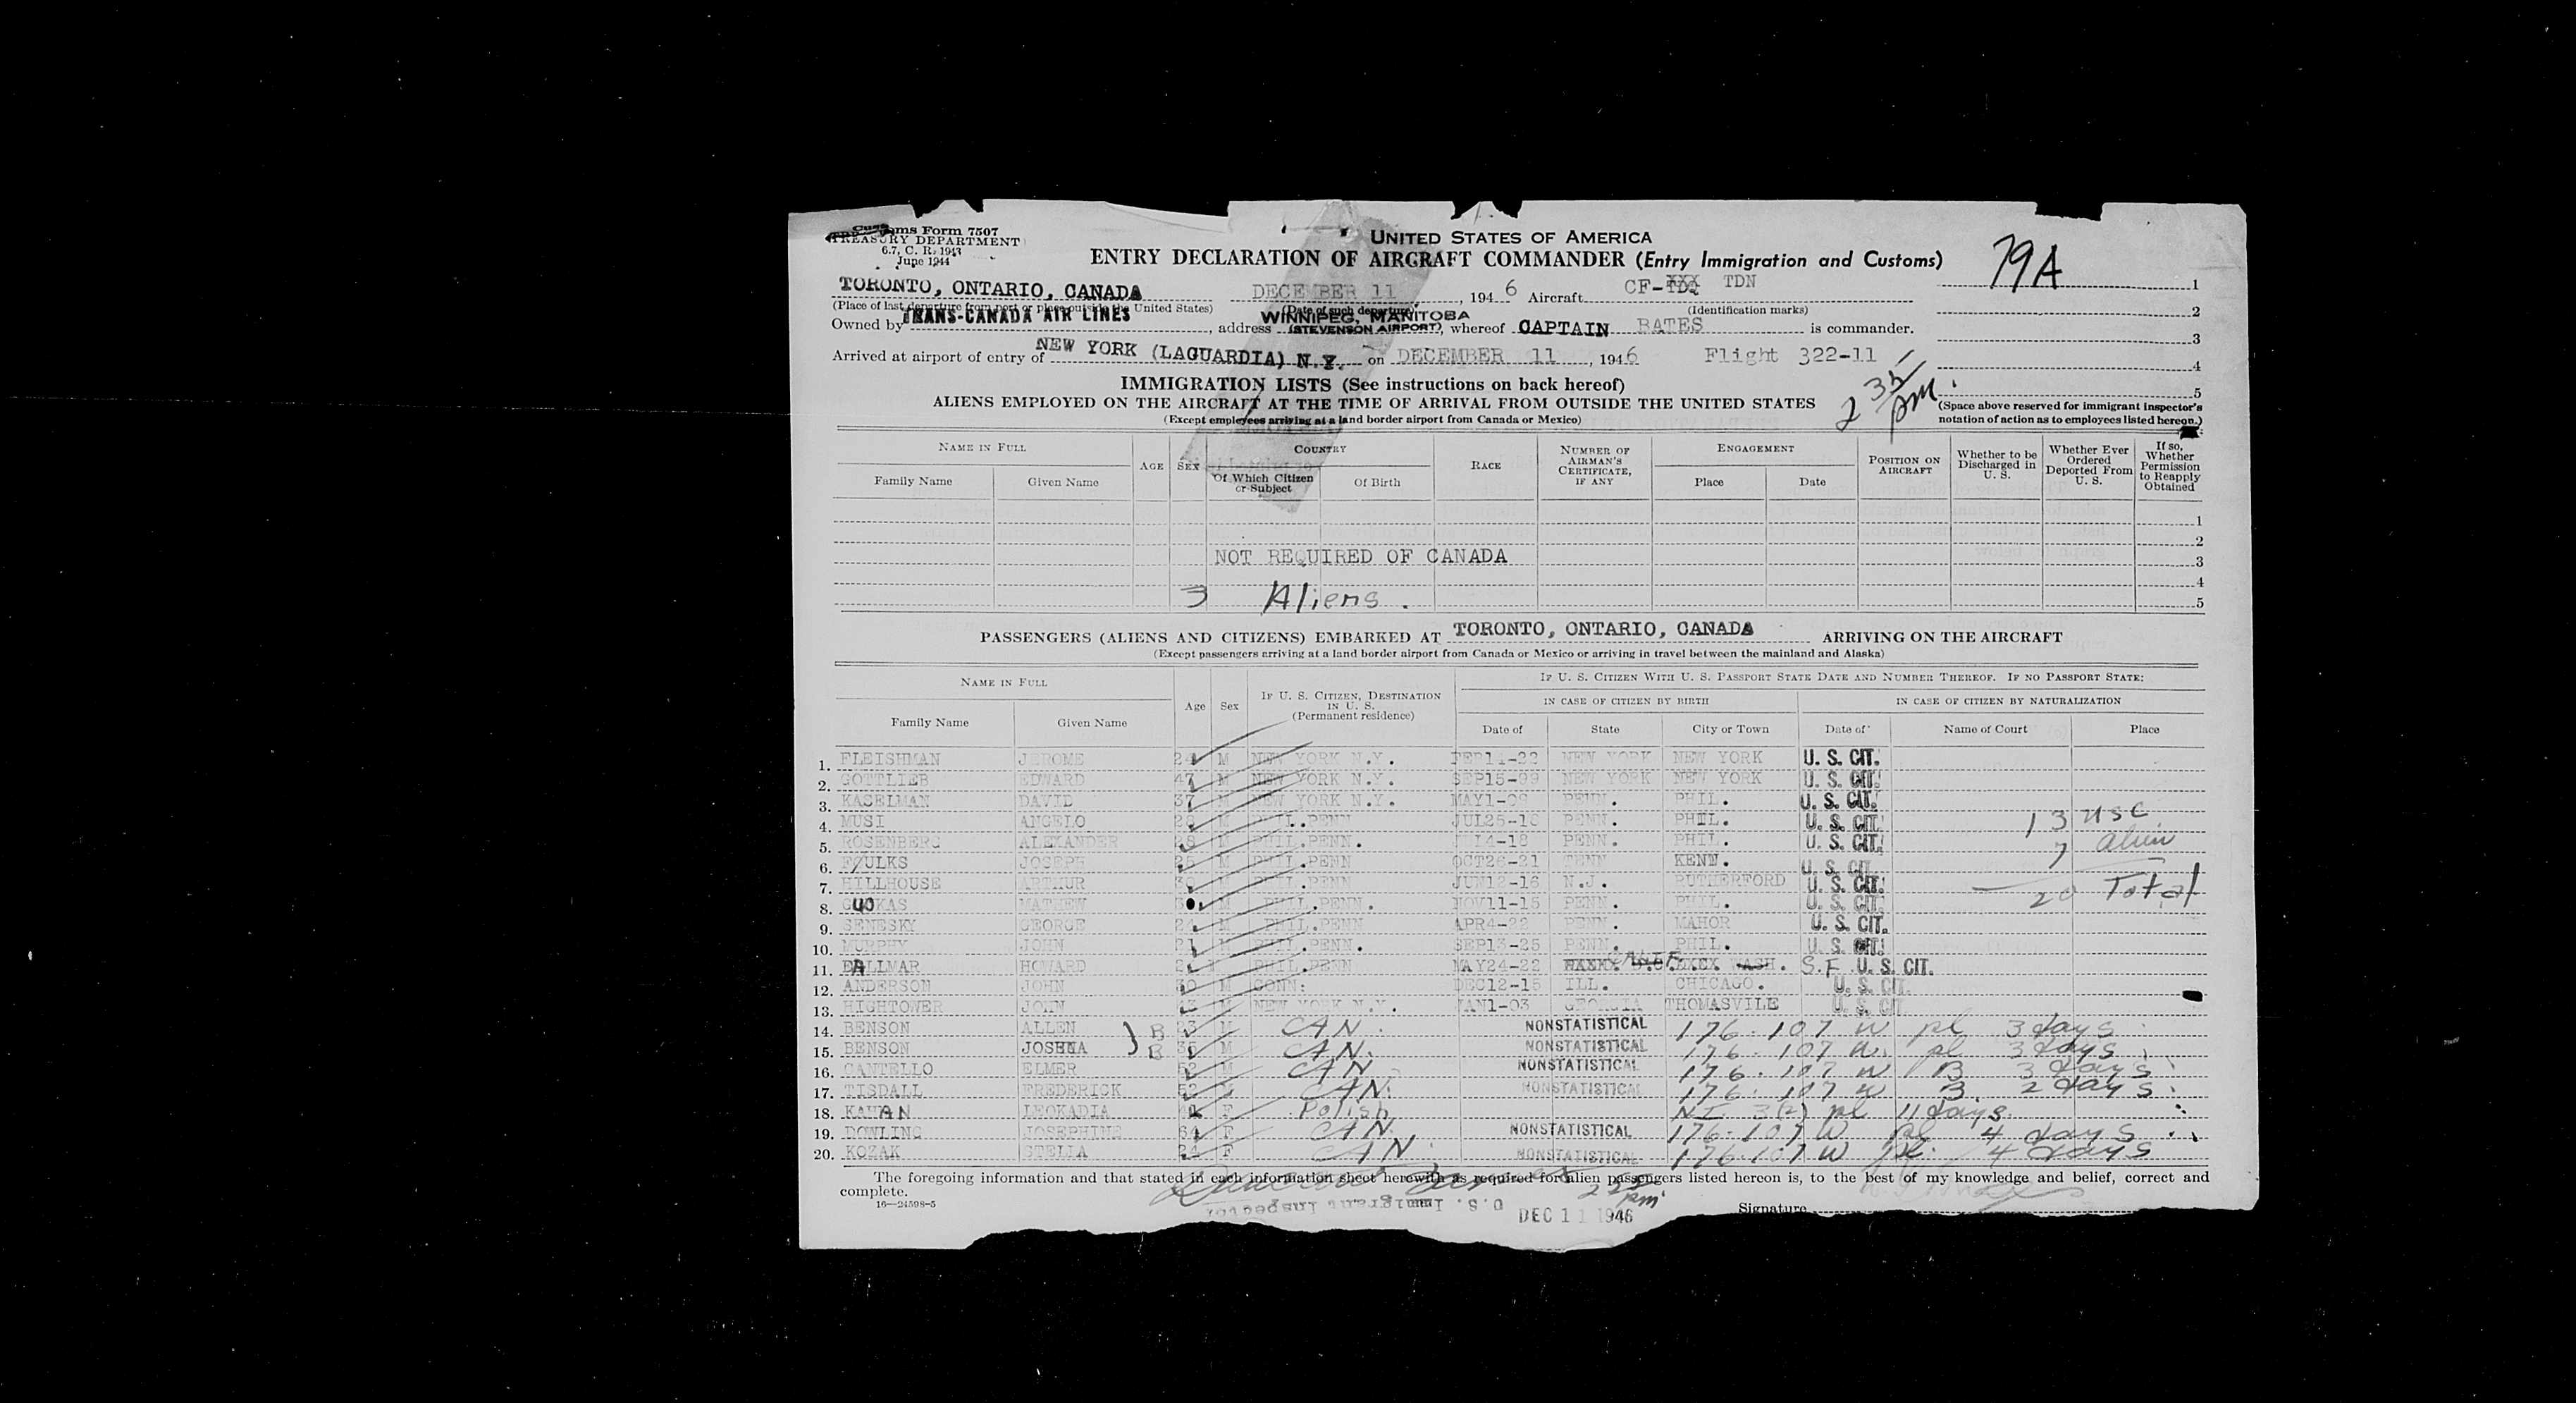 Customs Form 7507
TREASURY DEPARTMENT
6.7, C. R. 1943
June 1944
UNITED STATES OF AMERICA
ENTRY DECLARATION OF AIRCRAFT COMMANDER (Entry Immigration and Customs)
79A
TORONTO, ONTARIO, CANADA DECEMBER 11, 1946 Aircraft CF-TDQ TDN 1
(Place of last departure from port or place outside the United States) (Date of such departure) (Identification marks) 2
Owned by TRANS-CANADA AIR LINES, address WINNIPEG, MANITOBA (STEVENSON AIRPORT), whereof CAPTAIN BATES is commander.
3
Arrived at airport of entry of NEW YORK (LAGUARDIA) N.Y. on DECEMBER 11, 1946 Flight 322-11
4
2 35 pm.
5
IMMIGRATION LISTS (See instructions on back hereof)
ALIENS EMPLOYED ON THE AIRCRAFT AT THE TIME OF ARRIVAL FROM OUTSIDE THE UNITED STATES
(Except employees arriving at a land border airport from Canada or Mexico)
(Space above reserved for immigrant inspector's notation of action as to employees listed hereon.)
NAME IN FULL AGE SEX COUNTRY RACE NUMBER OF AIRMAN'S CERTIFICATE, IF ANY ENGAGEMENT POSITION ON AIRCRAFT Whether to be Discharged in U. S. Whether Ever Ordered Deported From U. S. If so, Whether Permission to Reapply Obtained
Family Name Given Name Of Which Citizen or Subject Of Birth Place Date
1
2
NOT REQUIRED OF CANADA 3
4
3 Aliens. 5
PASSENGERS (ALIENS AND CITIZENS) EMBARKED AT TORONTO, ONTARIO, CANADA ARRIVING ON THE AIRCRAFT
(Except passengers arriving at a land border airport from Canada or Mexico or arriving in travel between the mainland and Alaska)
NAME IN FULL Age Sex IF U. S. CITIZEN, DESTINATION IN U. S. (Permanent residence) IF U. S. CITIZEN WITH U. S. PASSPORT STATE DATE AND NUMBER THEREOF. IF NO PASSPORT STATE:
IN CASE OF CITIZEN BY BIRTH IN CASE OF CITIZEN BY NATURALIZATION
Family Name Given Name Date of State City or Town Date of Name of Court Place
1. FLEISHMAN JEROME 24 M NEW YORK N.Y. FEB14-22 NEW YORK NEW YORK U. S. CIT.
2. GOTTLIEB EDWARD 47 M NEW YORK N.Y. SEP15-99 NEW YORK NEW YORK U. S. CIT.
3. KASELMAN DAVID 37 M NEW YORK N.Y. MAY1-09 PENN. PHIL. U. S. CIT.
4. MUSI ANGELO 28 M PHIL.PENN JUL25-18 PENN. PHIL. U. S. CIT. 13 USC
5. ROSENBERG ALEXANDER M PHIL.PENN. 14-18 PENN. PHIL. U. S. CIT. 7 alien
6. FULKS JOSEPH 25 M PHIL.PENN OCT26-21 TENN KENT. U. S. CIT.
7. HILLHOUSE ARTHUR 30 M PHIL.PENN JUN12-16 N.J. RUTHERFORD U. S. CIT. 20 Total
8. GUOKAS MATHEW M PHIL.PENN. NOV11-15 PENN. PHIL. U. S. CIT.
9. SENESKY GEORGE 24 M PHIL.PENN APR4-22 PENN. MAHOR U. S. CIT.
10. MURPHY JOHN 21 M PHIL.PENN. SEP13-25 PENN. PHIL. U. S. CIT.
11. DALLMAR HOWARD M PHIL.PENN MAY24-22 WASH. S.F. U. S. CIT.
12. ANDERSON JOHN 30 M CONN: DEC12-15 ILL. CHICAGO. U. S. CIT.
13. HIGHTOWER JOHN 43 M NEW YORK N.Y. JAN1-03 GEORGIA THOMASVILE U. S. CIT.
14. BENSON ALLEN B M CAN. NONSTATISTICAL 176.107 W pl 3 days
15. BENSON JOSHUA B M CAN. NONSTATISTICAL 176.107 W. pl 3 days
16. CANTELLO ELMER M CAN NONSTATISTICAL 176.107 W B 3 days
17. TISDALL FREDERICK 53 M CAN. NONSTATISTICAL 176.107 W B. 2 days
18. KAHAN LEOKADIA F Polish N.I. 3(2) pl 11 days
19. DOWLING JOSEPHINE 64 F CAN. NONSTATISTICAL 176.107 W pl 4 days
20. KOZAK STELLA 24 F CAN NONSTATISTICAL 176.107 W pl. 4 days
The foregoing information and that stated in each information sheet herewith as required for alien passengers listed hereon is, to the best of my knowledge and belief, correct and complete.
16—24598-5
U. S. Immigrant Inspector
DEC 11 1946
pm
Signature